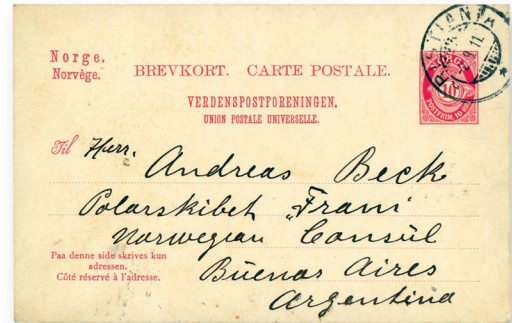 Norge.
Norvège.
BREVKORT. CARTE POSTALE.
VERDENSPOSTFORENINGEN.
UNION POSTALE UNIVERSELLE.
NORGE
10
POSTFRIM. 10 ØRE
KRISTIANIA
Til Herr.
Andreas Beck
Polarskibet „Fram"
Norwegian Consul
Buenos Aires
Argentina
Paa denne side skrives kun
adressen.
Côté réservé à l'adresse.